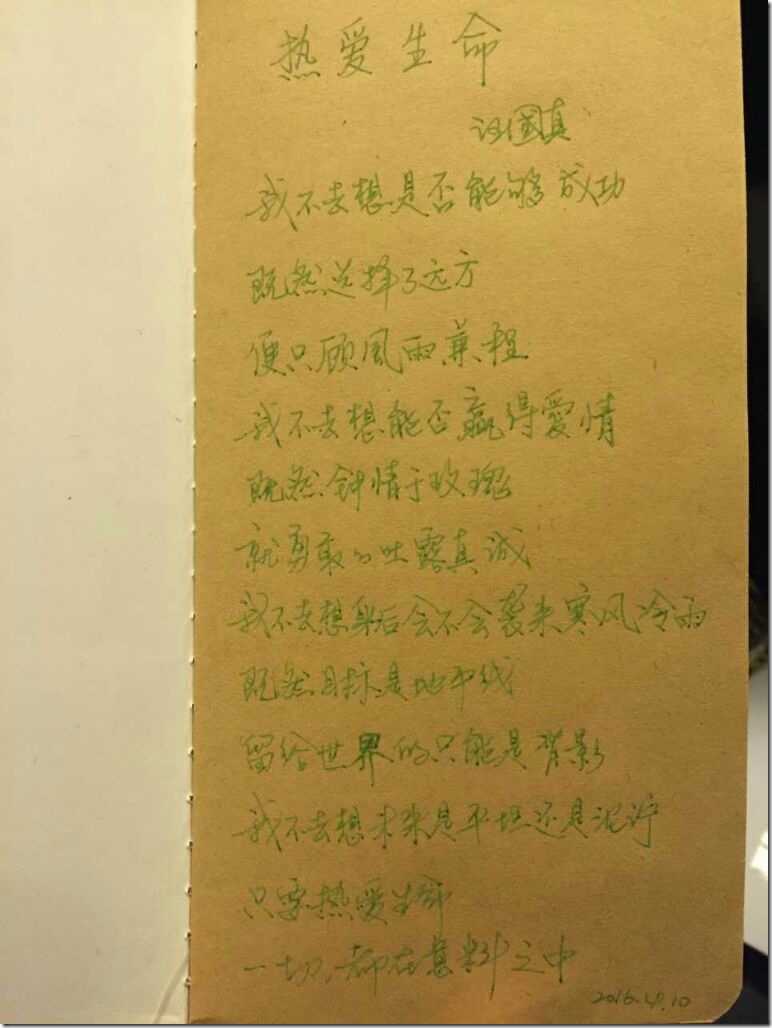 热爱生命
汪國真
我不去想是否能够成功
既然选择了远方
便只顾风雨兼程
我不去想能否赢得愛情
既然钟情于玫瑰
就勇敢的吐露真诚
我不去想身后会不会袭来寒风冷雨
既然目标是地平线
留给世界的只能是背影
我不去想未来是平坦还是泥泞
只要热爱生命
一切,都在意料之中
2016.4.10